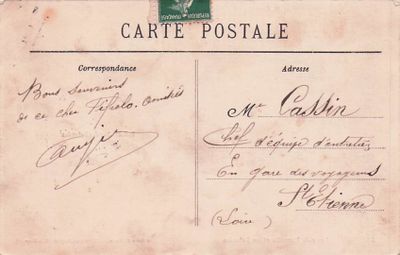 CARTE POSTALE
REPUBLIQUE FRANÇAISE
Correspondance
Bons Souvenirs
de ce cher Amitiés
Adresse
Mr Cassin
Chef d'équipe d'entretien
En gare des voyageurs
St Etienne
(Loire)